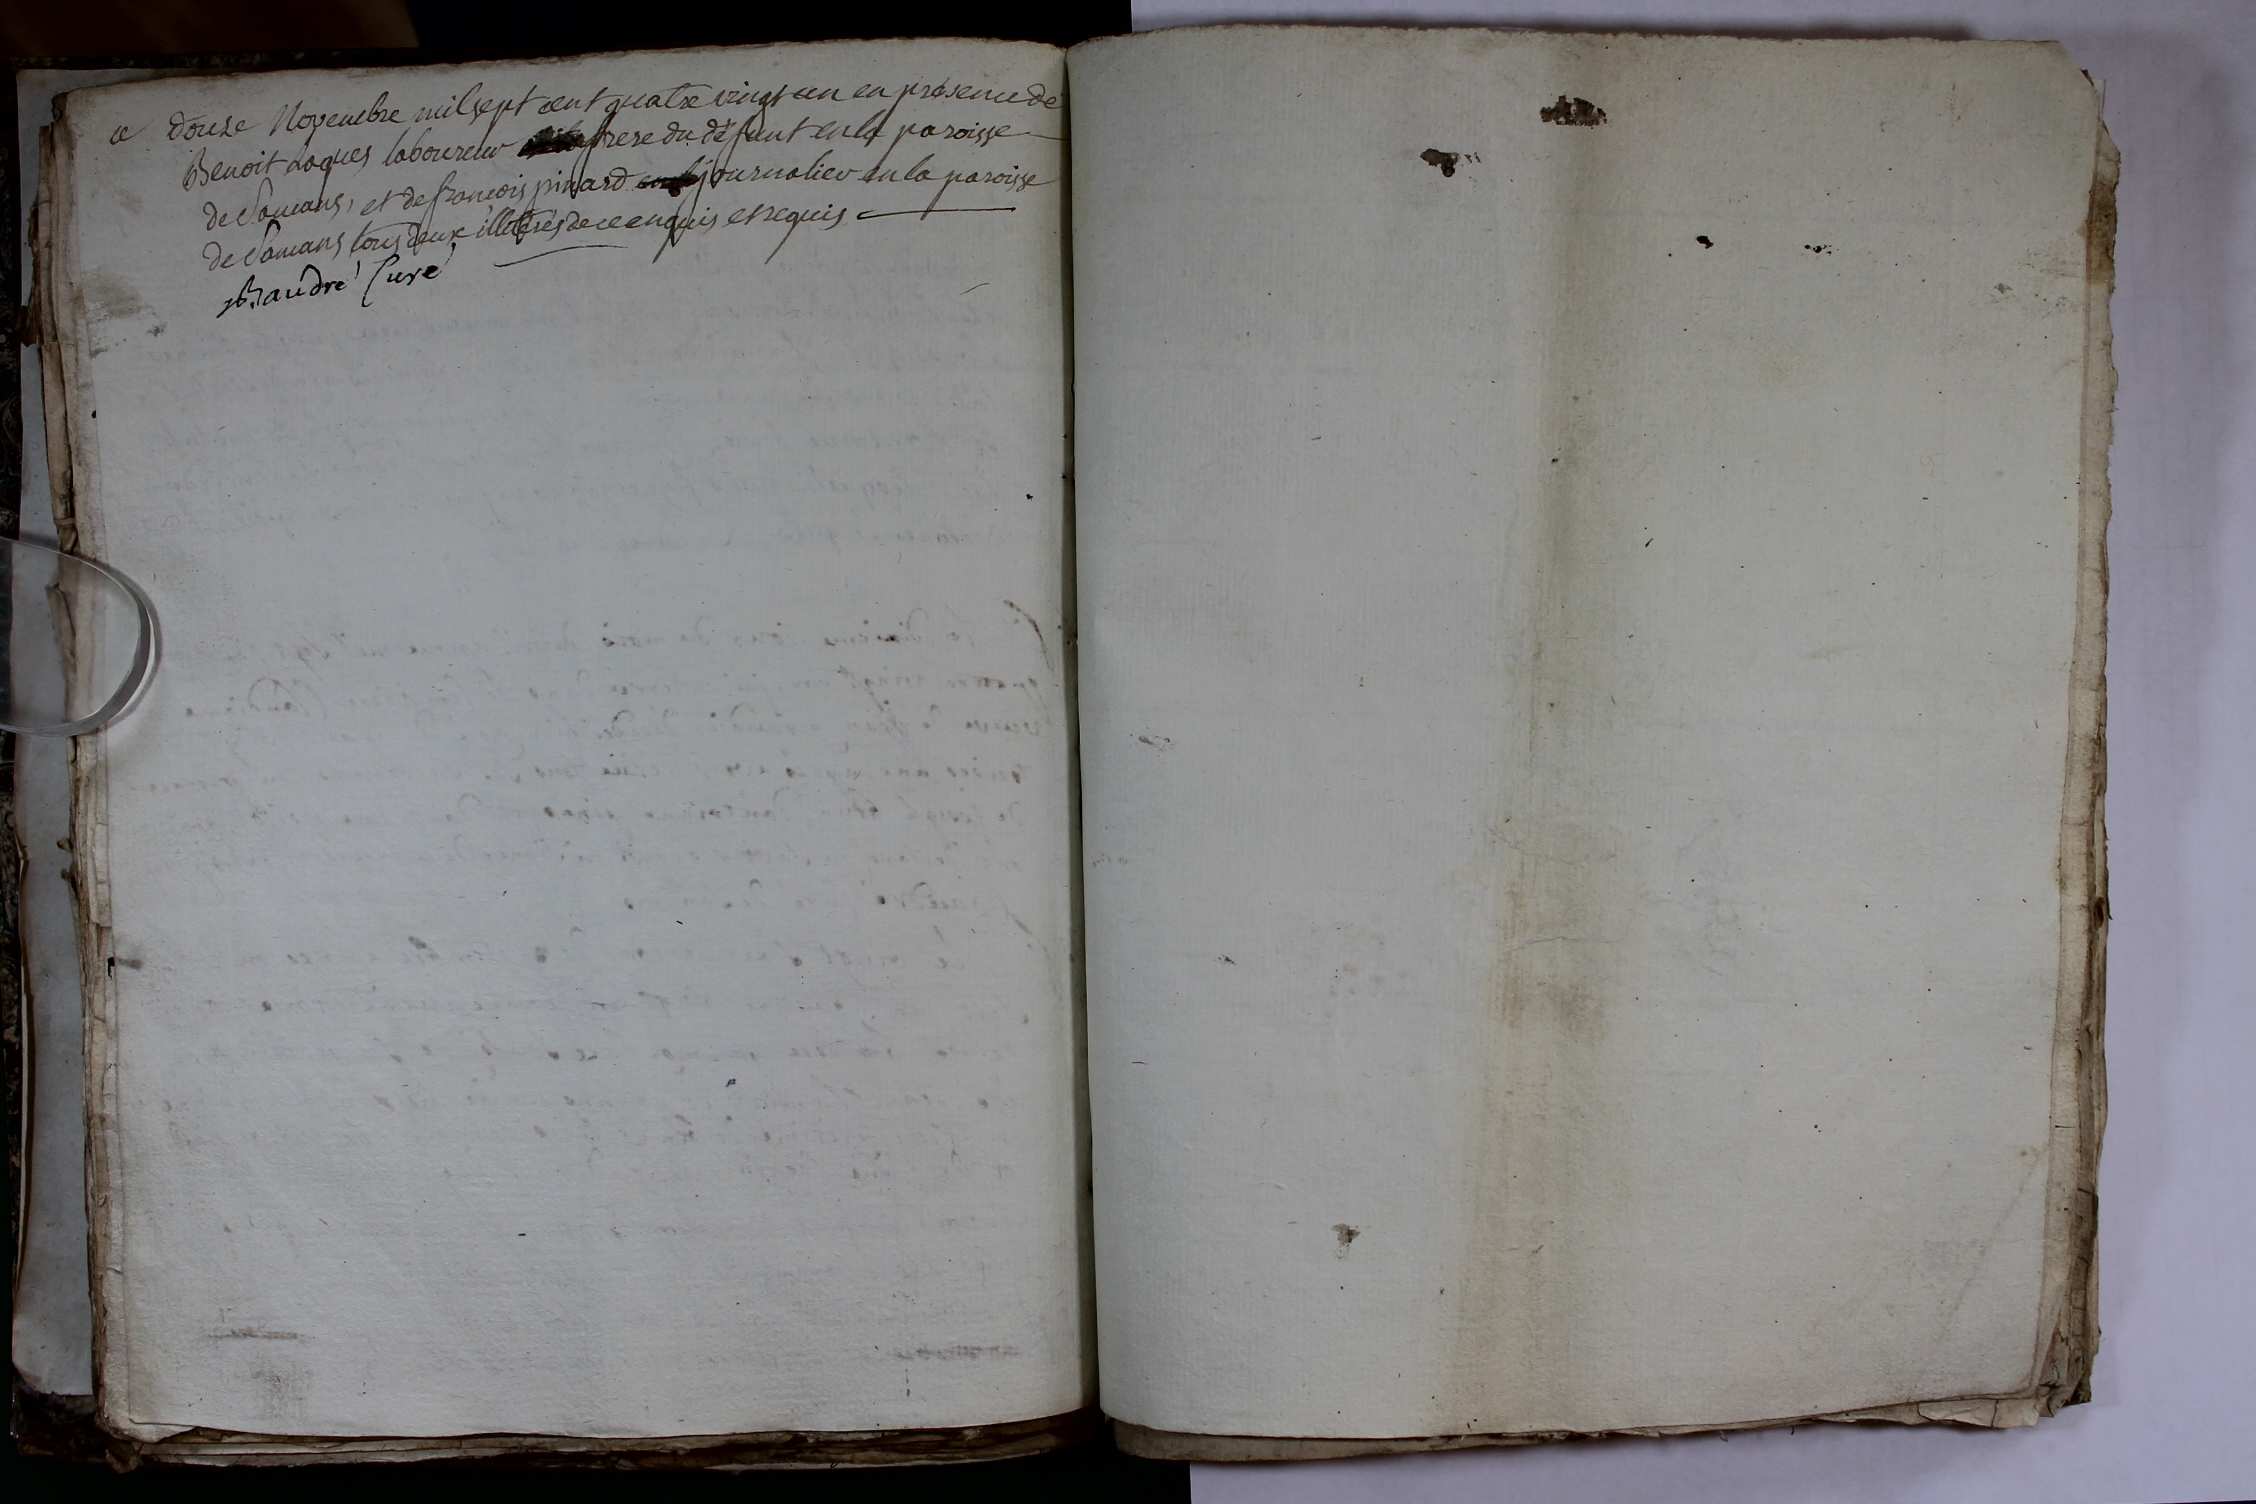 ce douze Novembre mil sept cent quatre vingt un en présence de
Benoit laques laboureur frere du défunt en la paroisse
de Samans, et de francois pinard journalier en la paroisse
de Samans tous deux illiterés de ce enquis et requis
Baudré Curé